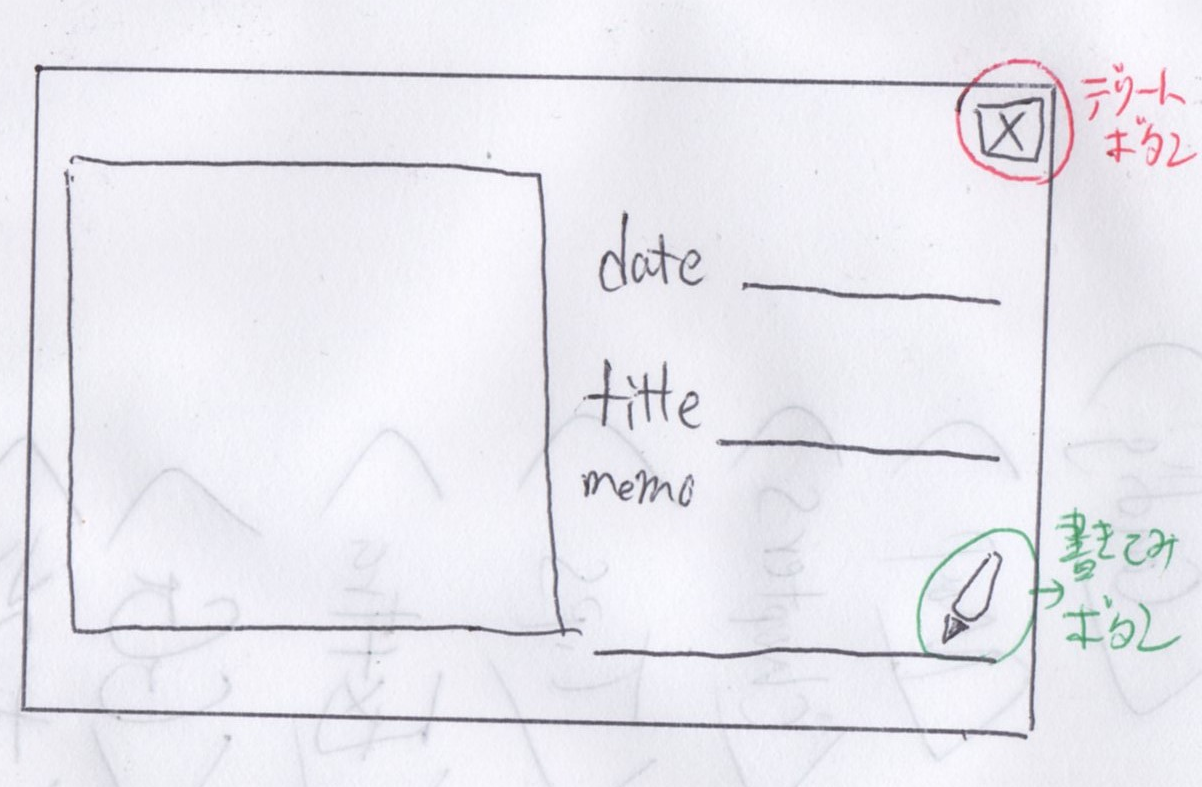 X
デリート
ボタン
date
title
memo
書きこみ
ボタン